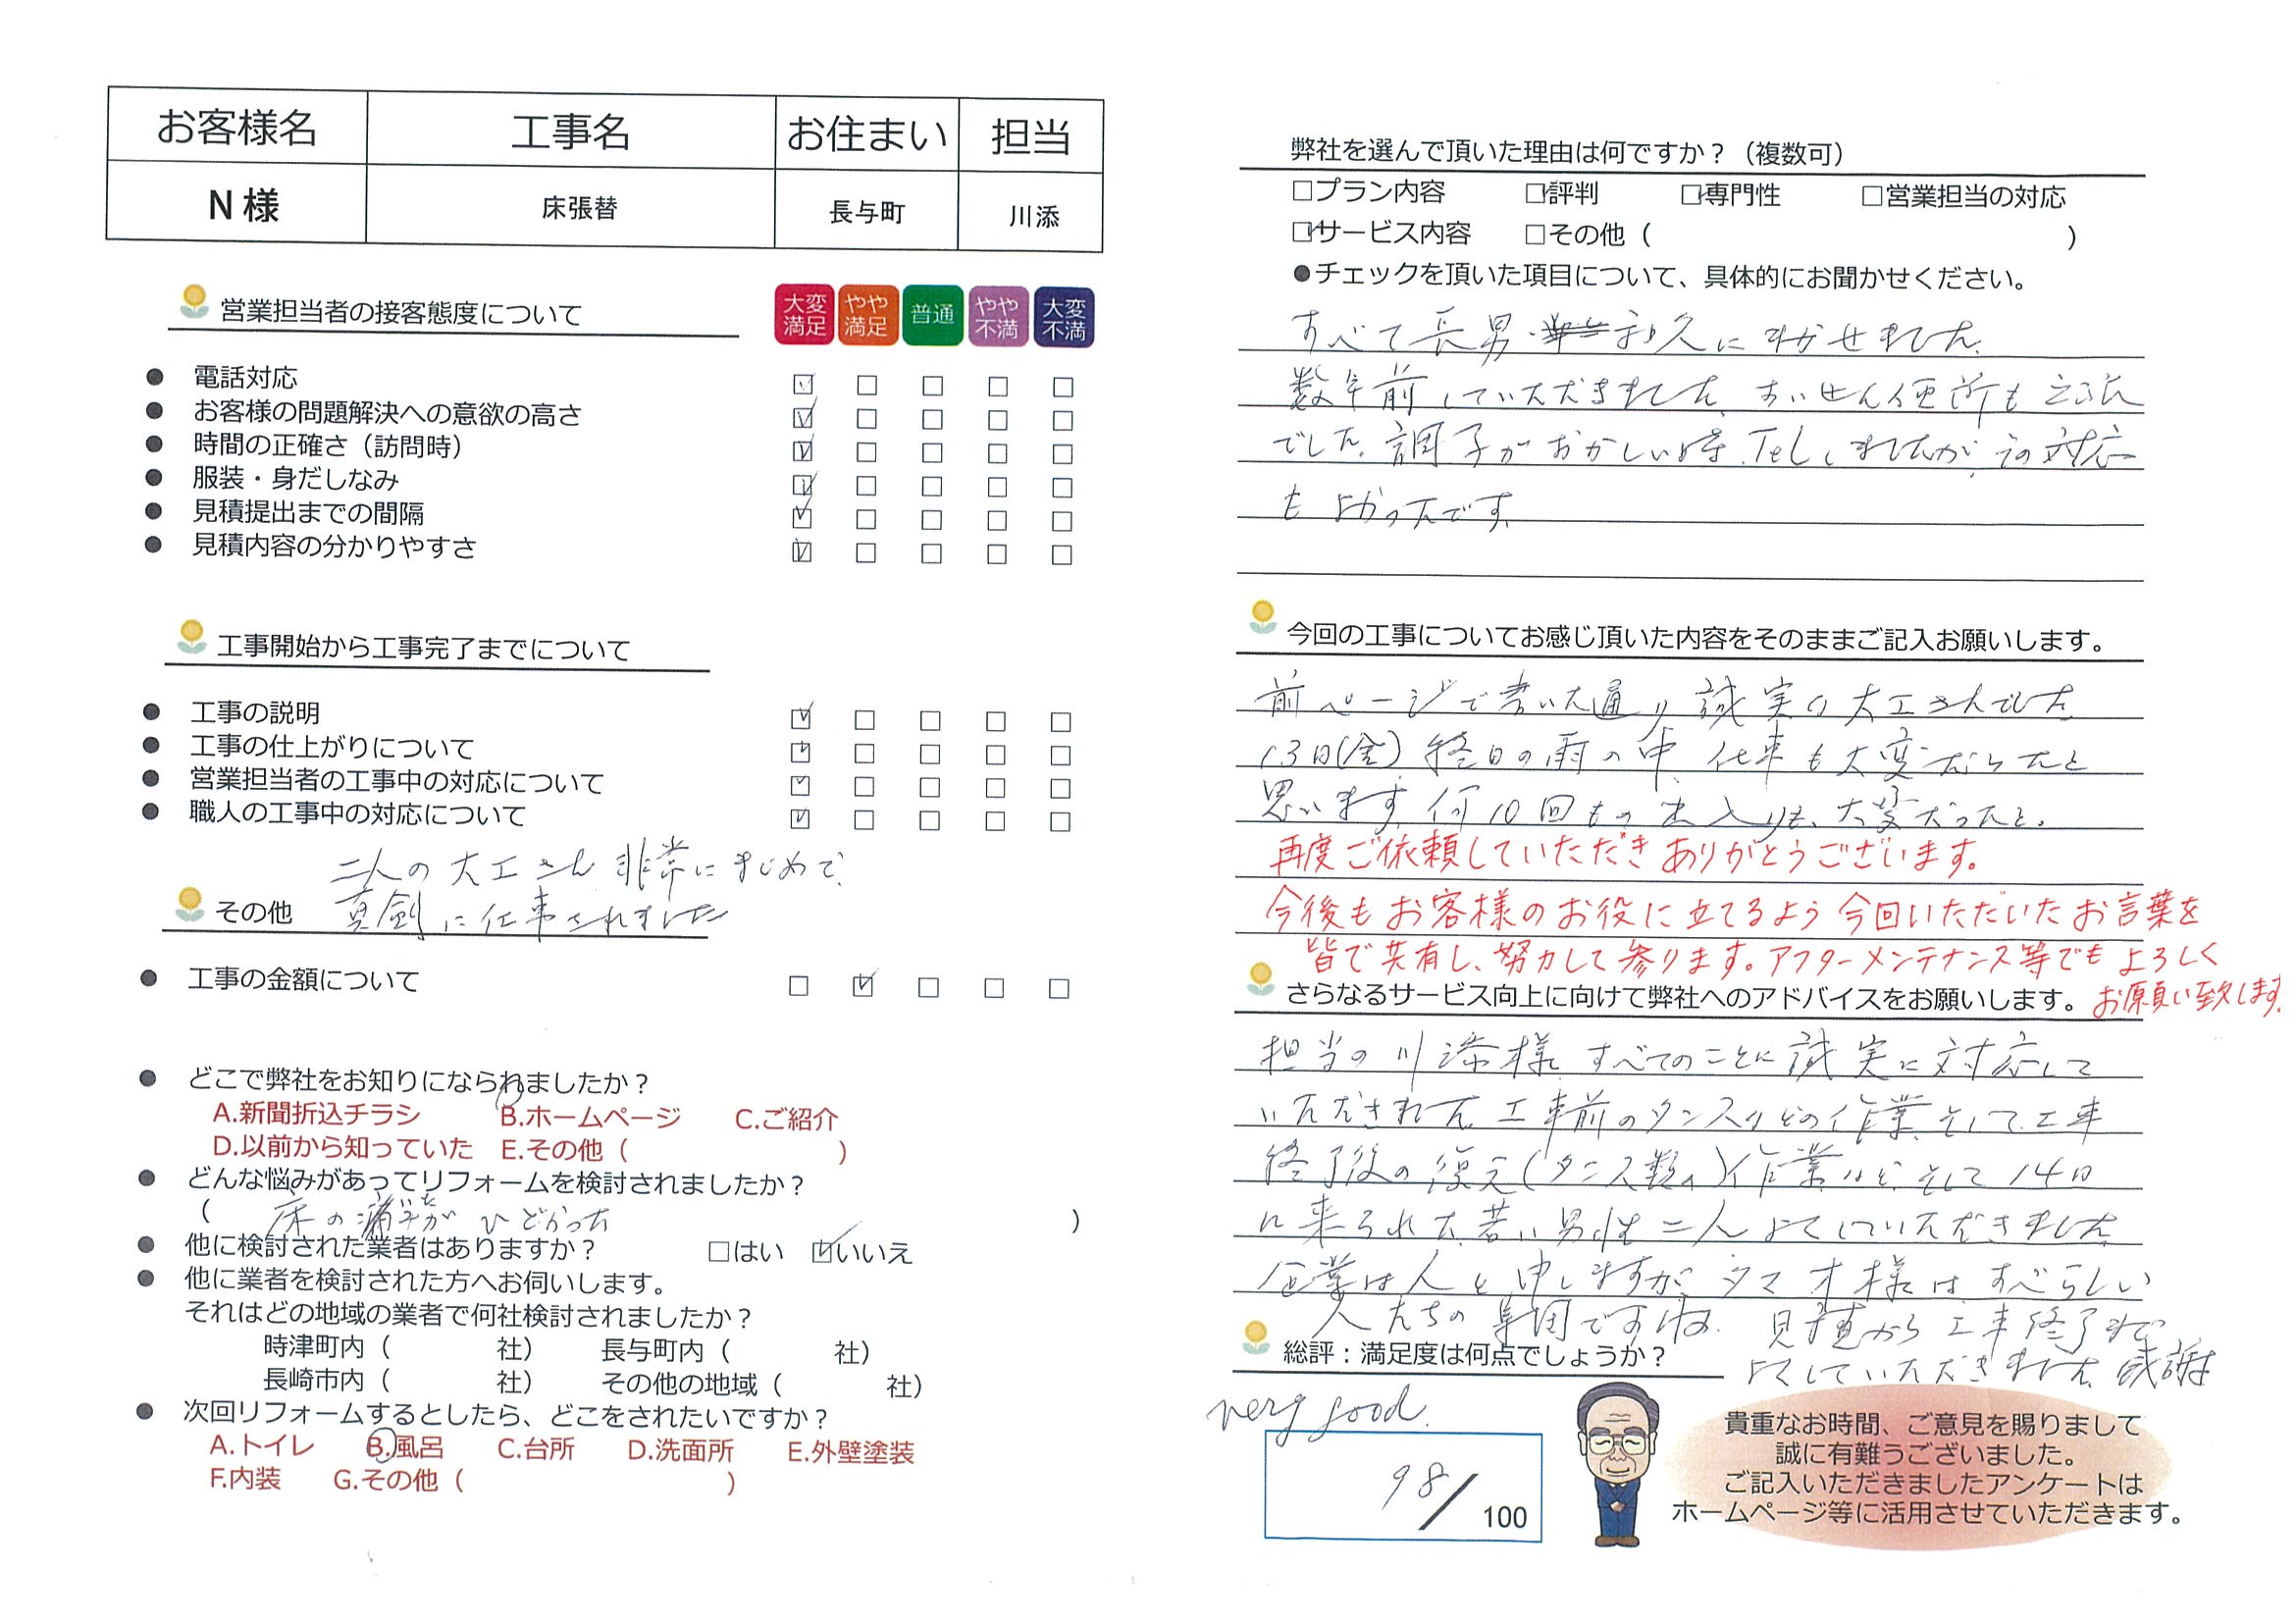 お客様名 工事名 お住まい 担当
N 様 床張替 長与町 川添
営業担当者の接客態度について
大変満足 やや満足 普通 やや不満 大変不満
● 電話対応
● お客様の問題解決への意欲の高さ
● 時間の正確さ（訪問時）
● 服装・身だしなみ
● 見積提出までの間隔
● 見積内容の分かりやすさ
工事開始から工事完了までについて
● 工事の説明
● 工事の仕上がりについて
● 営業担当者の工事中の対応について
● 職人の工事中の対応について
二人の大工さん非常にまじめで、
その他 真剣に仕事されました
● 工事の金額について
● どこで弊社をお知りになられましたか？
A.新聞折込チラシ B.ホームページ C.ご紹介
D.以前から知っていた E.その他（ ）
● どんな悩みがあってリフォームを検討されましたか？
（ 床の がひどかった ）
● 他に検討された業者はありますか？ □はい ☑いいえ
● 他に業者を検討された方へお伺いします。
それはどの地域の業者で何社検討されましたか？
時津町内（ 社） 長与町内（ 社）
長崎市内（ 社） その他の地域（ 社）
● 次回リフォームするとしたら、どこをされたいですか？
A.トイレ B.風呂 C.台所 D.洗面所 E.外壁塗装
F.内装 G.その他（ ）
弊社を選んで頂いた理由は何ですか？（複数可）
□プラン内容 ☑評判 ☑専門性 □営業担当の対応
☑サービス内容 □その他（ ）
●チェックを頂いた項目について、具体的にお聞かせください。
すべて長男 にまかせました。
数年前していただきました。すいせん便所も立派
でした。調子がおかしい時、Telしましたが、その対応
もよかったです。
今回の工事についてお感じ頂いた内容をそのままご記入お願いします。
前ページで書いた通り誠実の大工さんでした
13日(金)終日の雨の中、仕事も大変だったと
思います。何10回もの出入りも、大変だったと。
再度ご依頼していただきありがとうございます。
今後もお客様のお役に立てるよう今回いただいたお言葉を
皆で共有し、努力して参ります。アフターメンテナンス等でもよろしく
お願い致します。
さらなるサービス向上に向けて弊社へのアドバイスをお願いします。
担当の川添様、すべてのことに誠実に対応して
いただきました。工事前のタンスなどの作業、そして工事
終了後の復元(タンス類の)作業など、そして14日
に来られた若い男性二人よくしていただきました
企業は人と申しますが、タマオ様はすべらしい
人たちの集団ですね。見積から工事終了まで
よくしていただきました。感謝
総評：満足度は何点でしょうか？
very good.
98/100
貴重なお時間、ご意見を賜りまして
誠に有難うございました。
ご記入いただきましたアンケートは
ホームページ等に活用させていただきます。